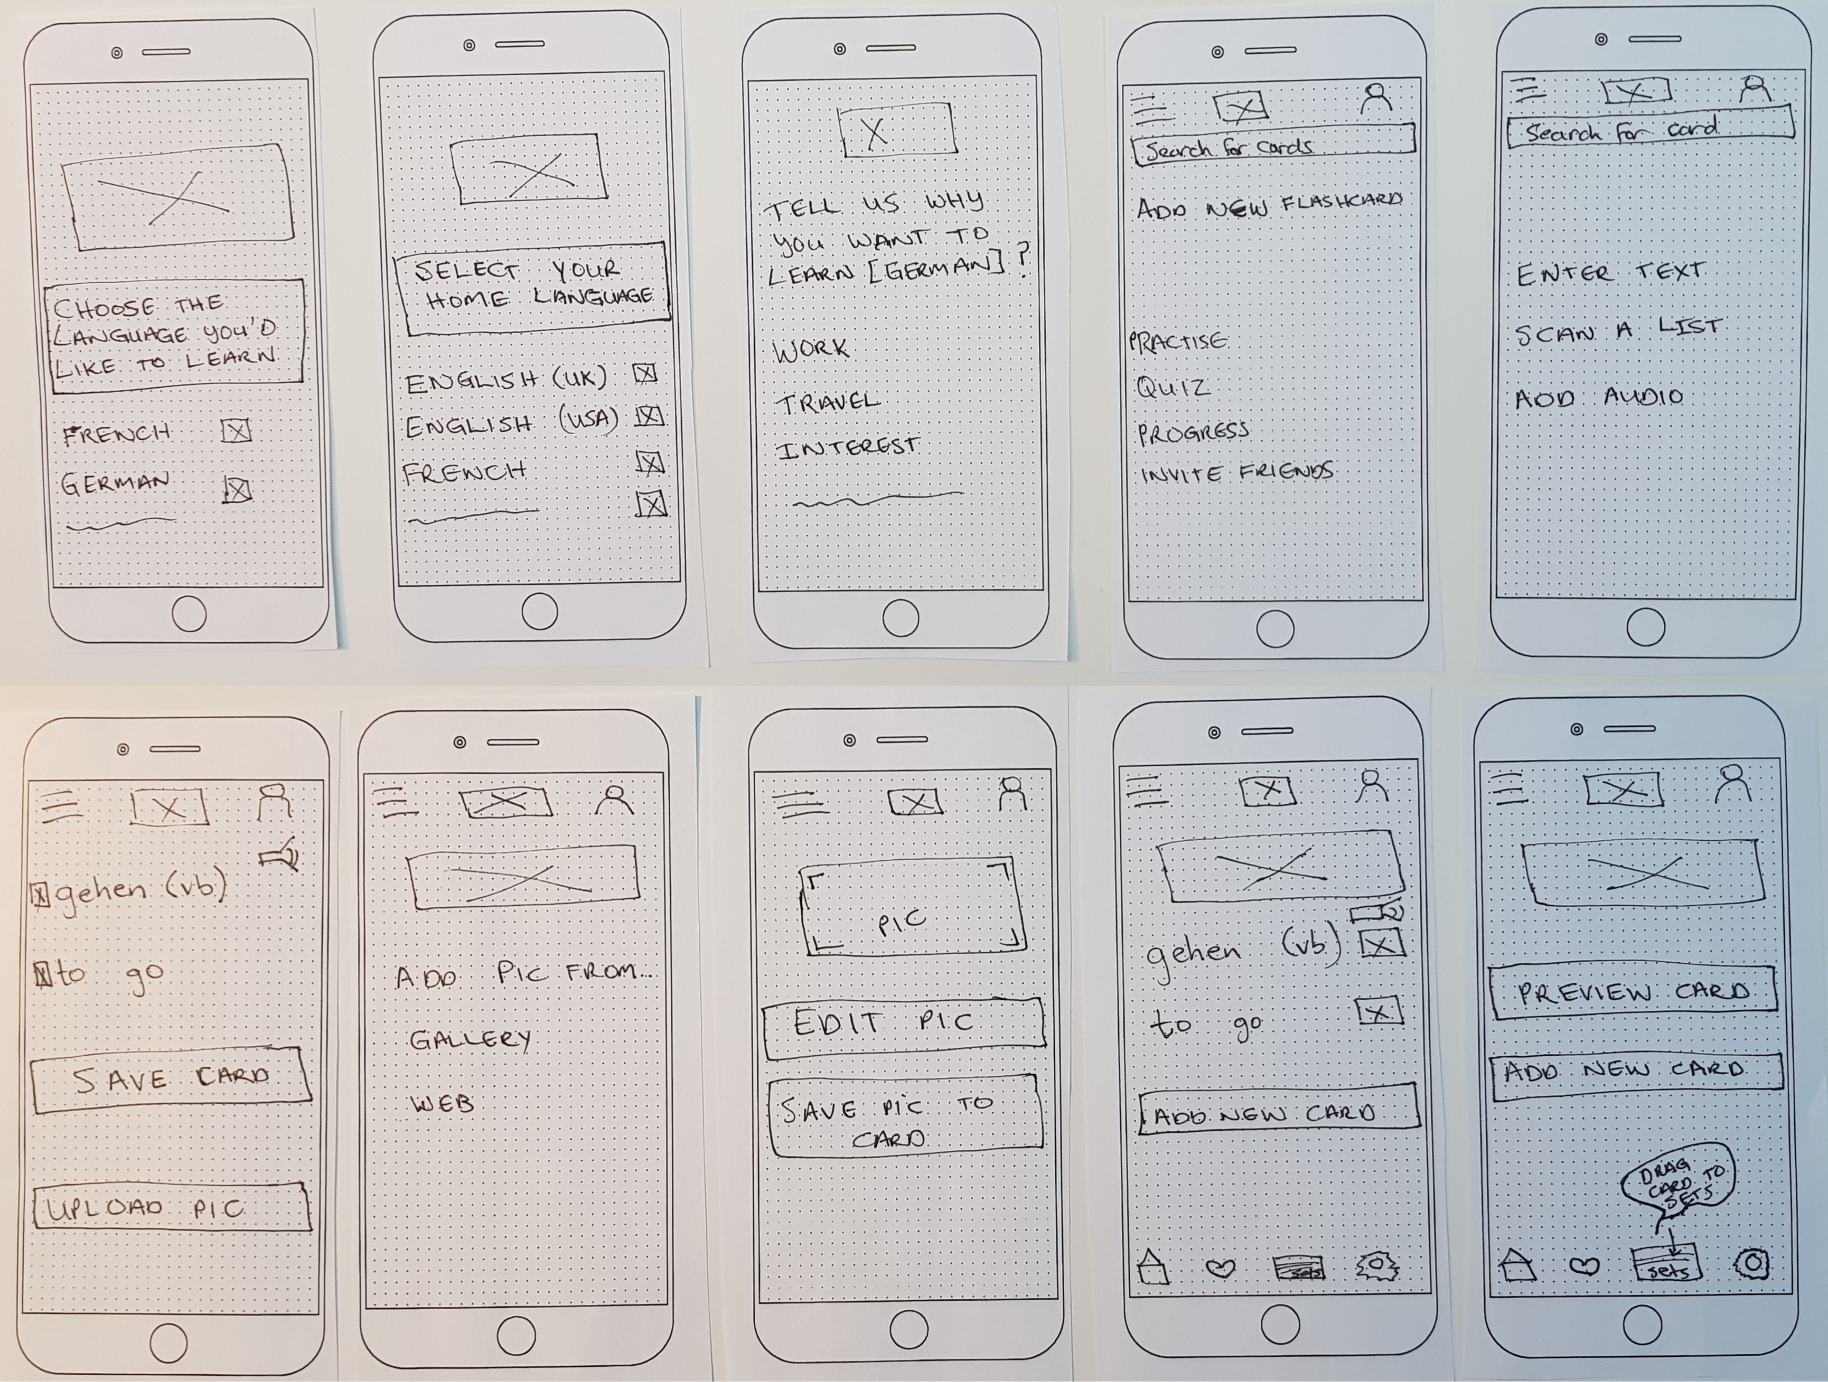 CHOOSE THE
LANGUAGE YOU'D
LIKE TO LEARN
FRENCH
GERMAN
SELECT YOUR
HOME LANGUAGE
ENGLISH (UK)
ENGLISH (USA)
FRENCH
TELL US WHY
YOU WANT TO
LEARN [GERMAN]?
WORK
TRAVEL
INTEREST
Search for cards
ADD NEW FLASHCARD
PRACTISE
QUIZ
PROGRESS
INVITE FRIENDS
Search for card
ENTER TEXT
SCAN A LIST
ADD AUDIO
gehen (vb)
to go
SAVE CARD
UPLOAD PIC
ADD PIC FROM...
GALLERY
WEB
PIC
EDIT PIC
SAVE PIC TO
CARD
gehen (vb)
to go
ADD NEW CARD
sets
PREVIEW CARD
ADD NEW CARD
DRAG
CARD TO
SETS
sets